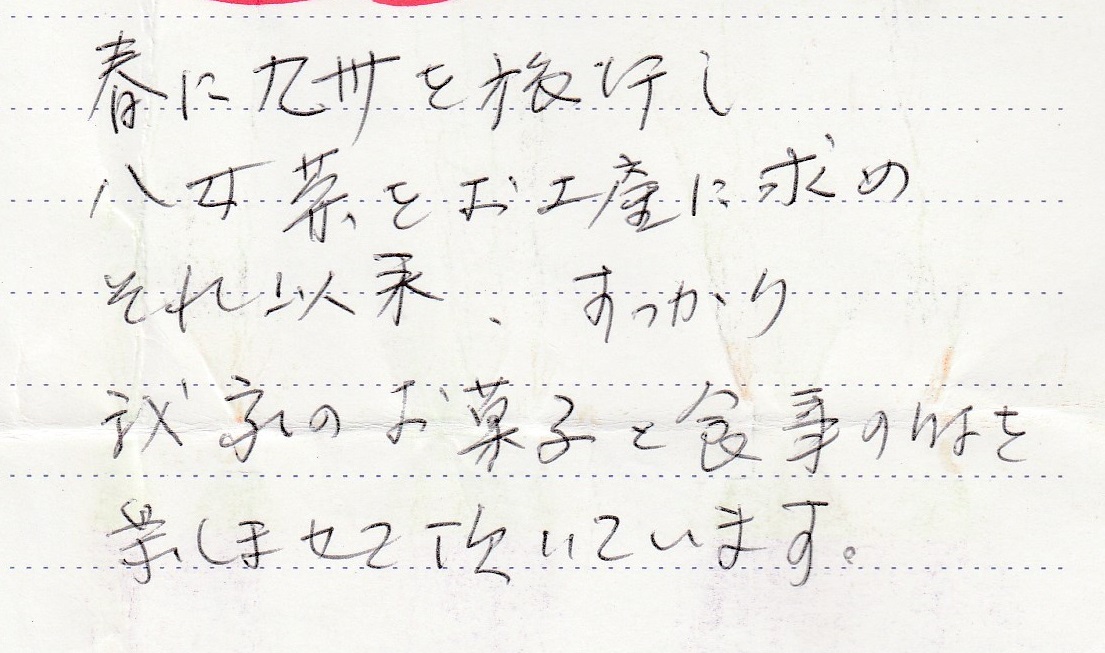 春に九州を旅行し
八女茶をお土産に求め
それ以来、すっかり
我家のお菓子と食事の味を
楽しませて頂いています。